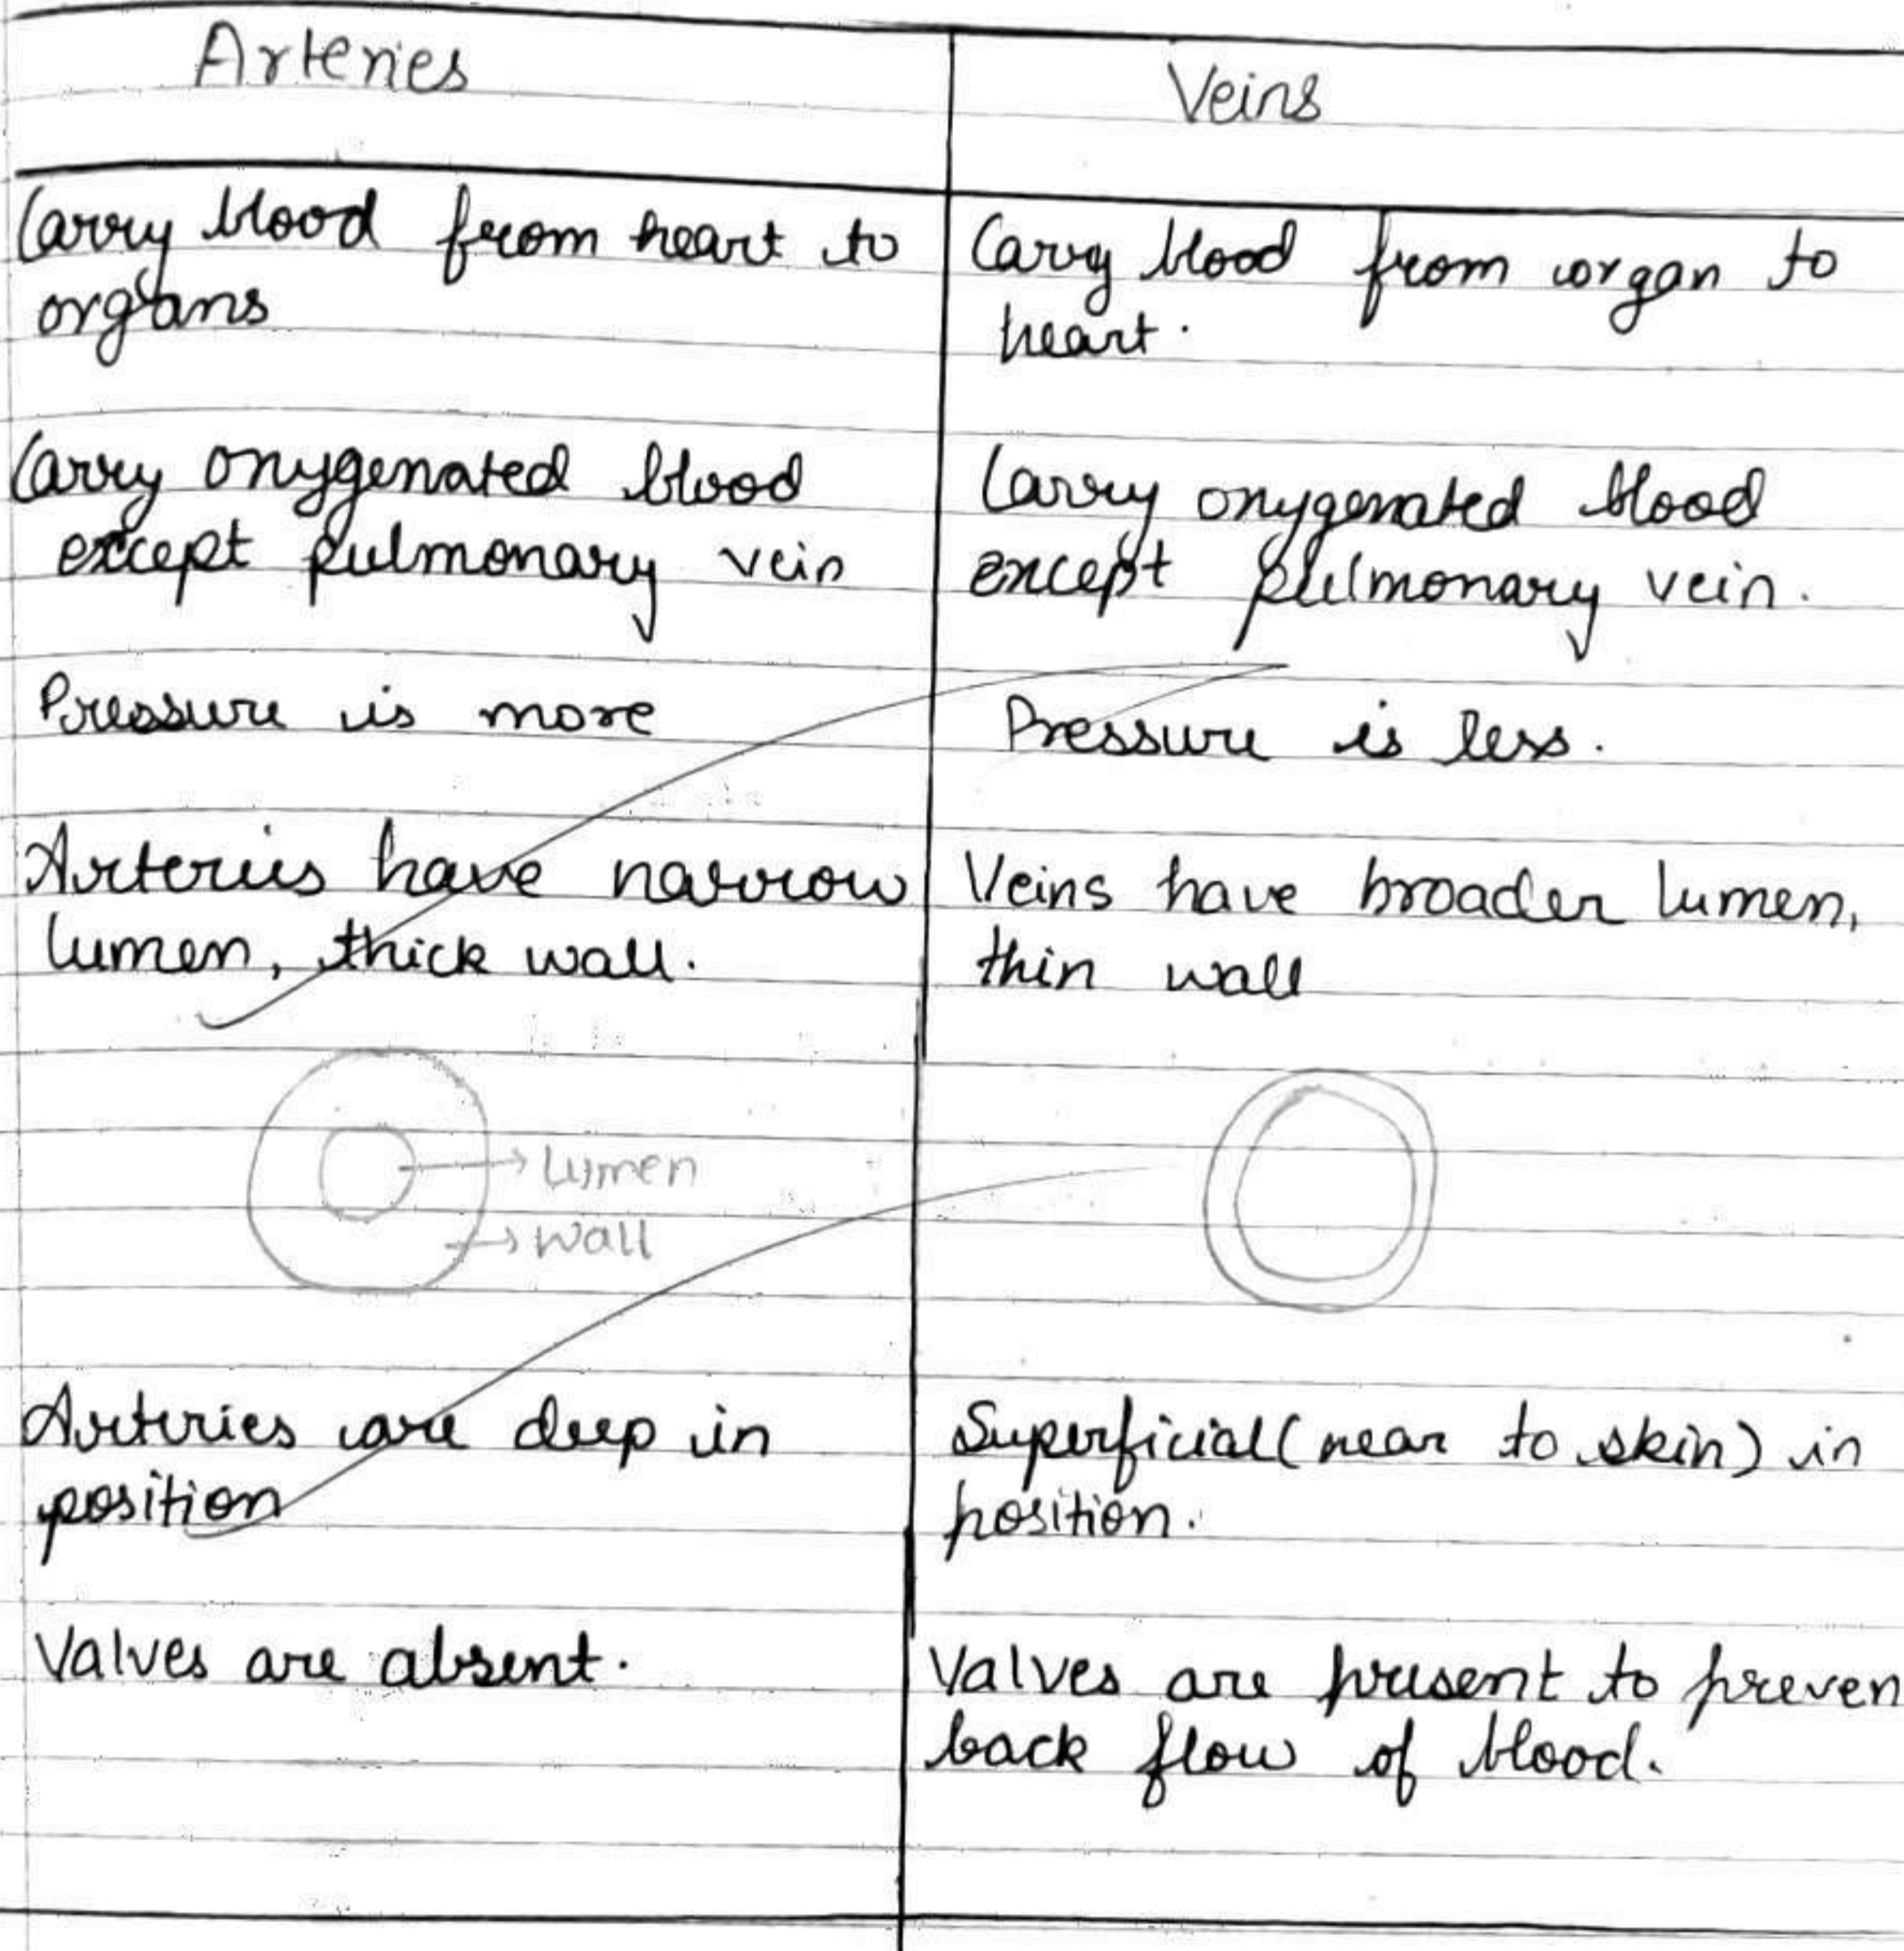 Arteries
Veins
Carry blood from heart to
organs
Carry blood from organ to
heart.
Carry onygenated blood
except pulmonary vein
Carry onygenated blood
except pulmonary vein.
Pressure is more
Pressure is less.
Arteries have narrow
lumen, thick wall.
Veins have broader lumen,
thin wall
Lumen
Wall
Arteries are deep in
position
Superficial (near to skin) in
position.
Valves are absent.
Valves are present to preven
back flow of blood.